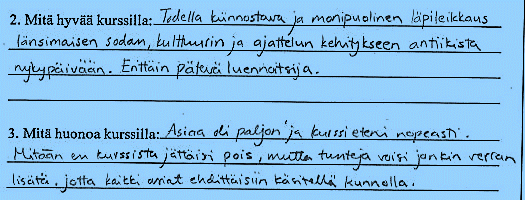 2. Mitä hyvää kurssilla: Todella kiinnostava ja monipuolinen läpileikkaus
länsimaisen sodan, kulttuurin ja ajattelun kehitykseen antiikista
nykypäivään. Erittäin pätevä luennoitsija.
3. Mitä huonoa kurssilla: Asiaa oli paljon ja kurssi eteni nopeasti.
Mitään en kurssista jättäisi pois, mutta tunteja voisi jonkin verran
lisätä, jotta kaikki asiat ehdittäisiin käsitellä kunnolla.